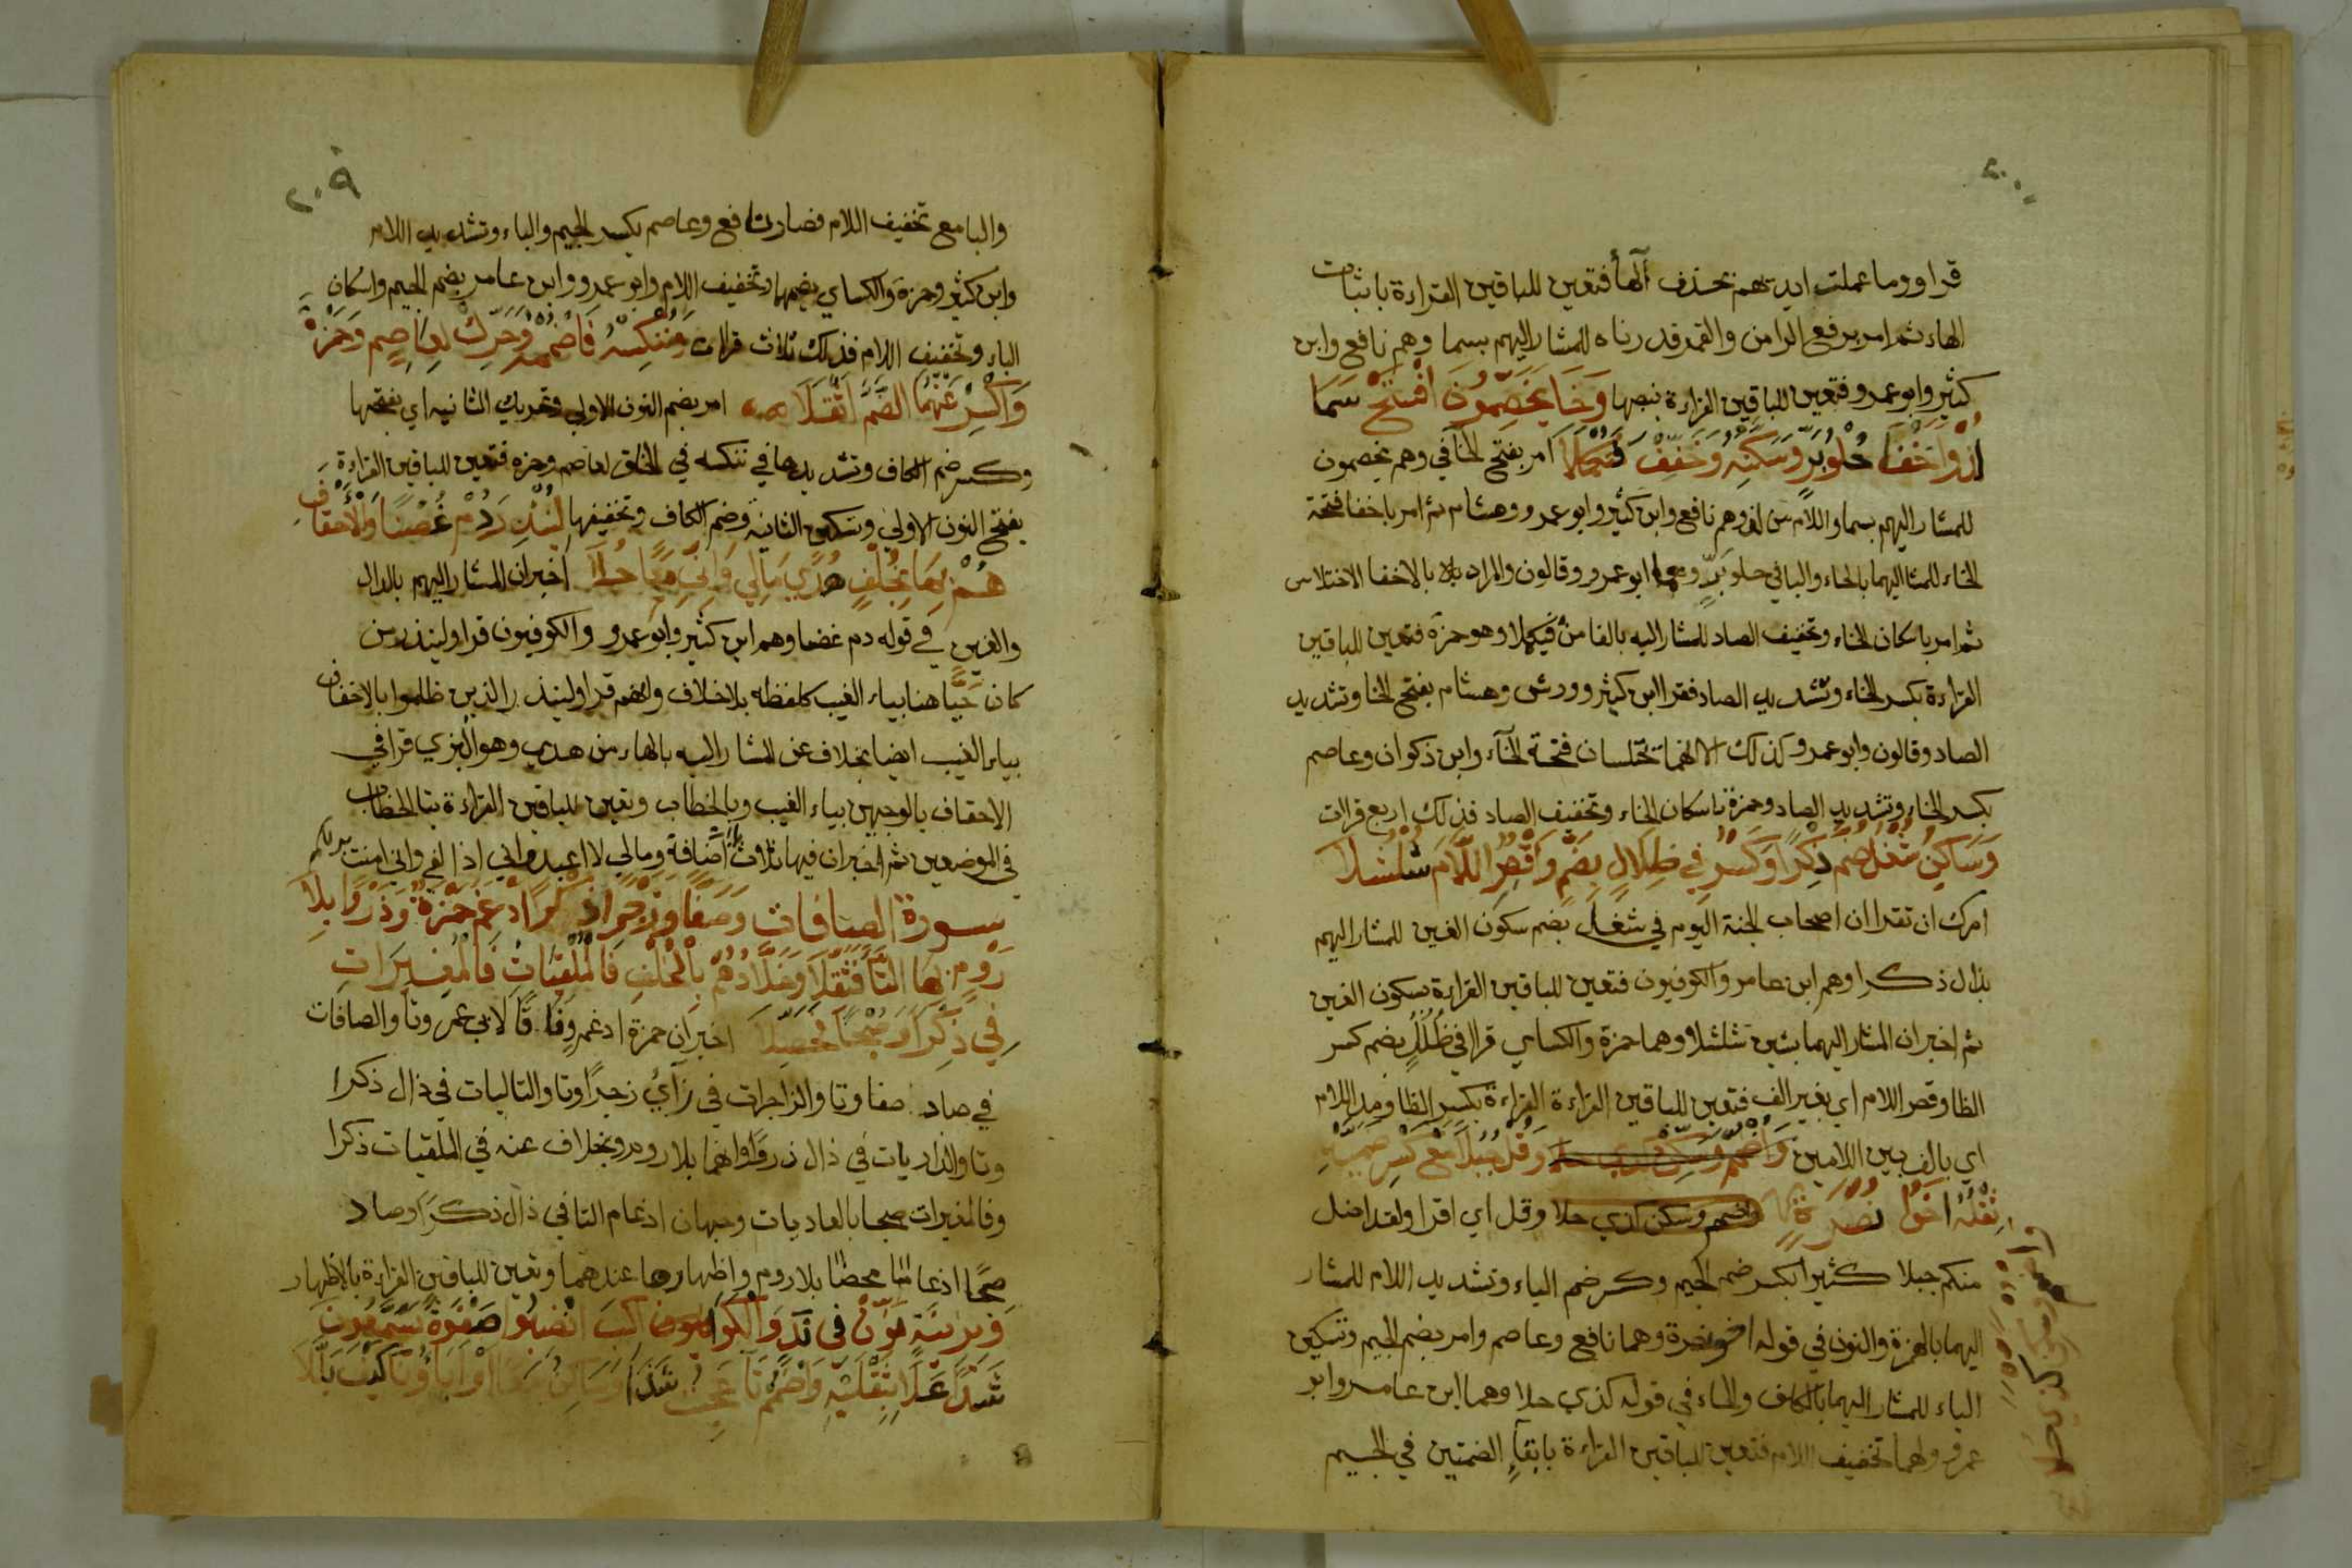 قراو وما عملت ايديهم بحذف الها فتعين للباقين القراءة باثبات
الهاء ثم امر برفع الرا من والقمر قدرناه للمشار اليهم بسما وهم نافع وابن
كثير وابو عمرو فتعين للباقين القراءة بنصبها وَخَا يَخْصِمُونَ افْتَحْ سَمَا
لُذْ وَاخْفِ حُلْوَ بَرٍّ وَسَكِّنْهُ وَخَفِّفْ فَتُكْمِلَا امر بفتح الخا في وهم يخصمون
للمشار اليهم بسما واللام من لذ وهم نافع وابن كثير وابو عمرو وهشام ثم امر باخفا فتحة
الخاء للمشا اليهما بالحاء والبا في حلو بَرٍّ وهما ابو عمرو وقالون والمراد بالاخفا الاختلاس
ثم امر باسكان الخاء وتخفيف الصاد للمشار اليه بالفا من فتكملا وهو حمزة فتعين للباقين
القراءة بكسر الخاء وتشديد الصاد فقرا ابن كثير وورش وهشام بفتح الخا وتشديد
الصاد وقالون وابو عمرو كذلك الا انهما يختلسان فتحة الخاء وابن ذكوان وعاصم
بكسر الخاء وتشديد الصاد وحمزة باسكان الخاء وتخفيف الصاد فذلك اربع قراات
وَسَاكِنَ شُغْلٍ ضُمَّ ذِكْرًا وَكَسْرُ فِي ظِلَالٍ بِضَمٍّ وَاقْصُرِ اللَّامَ شُلْشُلَا
امرك ان تقرا ان اصحاب الجنة اليوم في شغل بضم سكون الغين للمشار اليهم
بذال ذكرا وهم ابن عامر والكوفيون فتعين للباقين القراءة بسكون الغين
ثم اخبر ان المشار اليهما بشين شلشلا وهما حمزة والكساي قرا في ظُلَلٍ بضم كسر
الظا وقصر اللام اي بغير الف فتعين للباقين القراءة القراءة بكسر الظا ومد اللام
اي بالف بين اللامين وَقُلْ جُبُلًا مَعْ كَسْرِ ضَمَّيْهِ
ثِقْلُهُ اخُو نُصْرَةٍ واضمم وسكن كذي حلا وقل اي اقرا ولقد اضل
منكم جبلا كثيرا بكسر ضم الجيم وكسر ضم الباء وتشديد اللام للمشار
اليهما بالهمزة والنون في قوله اخو نصرة وهما نافع وعاصم وامر بضم الجيم وتسكين
الباء للمشار اليهما بالكاف والحاء في قوله كذي حلا وهما ابن عامر وابو
عمرو ولهما تخفيف اللام فتعين للباقين القراءة بابقاء الضمتين في الجيم
٢٠٩
والبا مع تخفيف اللام فصار نافع وعاصم بكسر الجيم والباء وتشديد اللام
وابن كثير وحمزة والكساي بضمهما وتخفيف اللام وابو عمرو وابن عامر بضم الجيم واسكان
الباء وتخفيف اللام فذلك ثلاث قراات وَنَنْكُسْهُ فَاضْمُمْهُ وَحَرِّكْ لِعَاصِمٍ وَحَمْزَةَ
وَاكْسِرْ عَنْهُمَا الضَّمَّ اثْقَلَا امر بضم النون الاولى وتحريك الثانيه اي بفتحها
وكسر ضم الكاف وتشديدها في ننكسه في الخلق لعاصم وحمزه فتعين للباقين القراءة
بفتح النون الاولى وتسكين الثانية وضم الكاف وتخفيفها لِيُنْذِرَ دُمْ غُصْنًا وَالْاحْقَافُ
هُمْ بِهَا بِخُلْفٍ هُدًى مَالِي وَانِّي مَعًا حُلَا اخبر ان المشار اليهم بالدال
والغين في قوله دم غصنا وهم ابن كثير وابو عمرو والكوفيون قراو لينذر من
كان حَيًّا هنا بياء الغيب كلفظه بلا خلاف وانهم قراو لينذر الذين ظلموا بالاحقاف
بياء الغيب ايضا بخلاف عن المشار اليه بالهاء من هدي وهو البزي قرا في
الاحقاف بالوجهين بياء الغيب وبالخطاب وتعين للباقين القراءة بتا الخطاب
في الموضعين ثم اخبر ان فيها ثلاث ياات اضافة ومالي لا اعبد واني اذا لفي واني امنت بربكم
سورة الصافات وَصَفًّا وَزَجْرًا ذِكْرًا ادْغَمَ حَمْزَةٌ وَذَرْوًا بِلَا
رَوْمٍ بِهَا التَّا فَثَقَّلَا وَخَلَّادُهُمْ بِالْخُلْفِ فَالْمُلْقِيَاتِ فَالْمُغِيرَاتِ
فِي ذِكْرًا وَصُبْحًا فَحَصِّلَا اخبر ان حمزة ادغم وفاقا لابي عمرو تا والصافات
في صاد صفا وتا والزاجرات في زاي زجرًا وتا والتاليات في ذال ذكرا
وتا والذاريات في ذال ذروًا وانهما بلا روم وبخلاف عنه في الملقيات ذكرا
وفالمغيرات صبحا بالعاديات وجهان ادغام التا في ذال ذكرًا وصاد
صبحًا ادغاما محضا بلا روم واظهارها عندهما وتعين للباقين القراءة بالاظهار
بِزِينَةِ نَوِّنْ فِي نَدٍ وَالْكَوَاكِبِ انْصِبُوا صَفْوَةً يَسَّمَّعُونَ
شَذًا عَلَا بِثِقْلَيْهِ وَاضْمُمْ تَا عَجِبْتَ شَذًا وَسَاكِنٌ مَعًا اوْ ابَاؤُنَا كَيْفَ بَلَّلَا